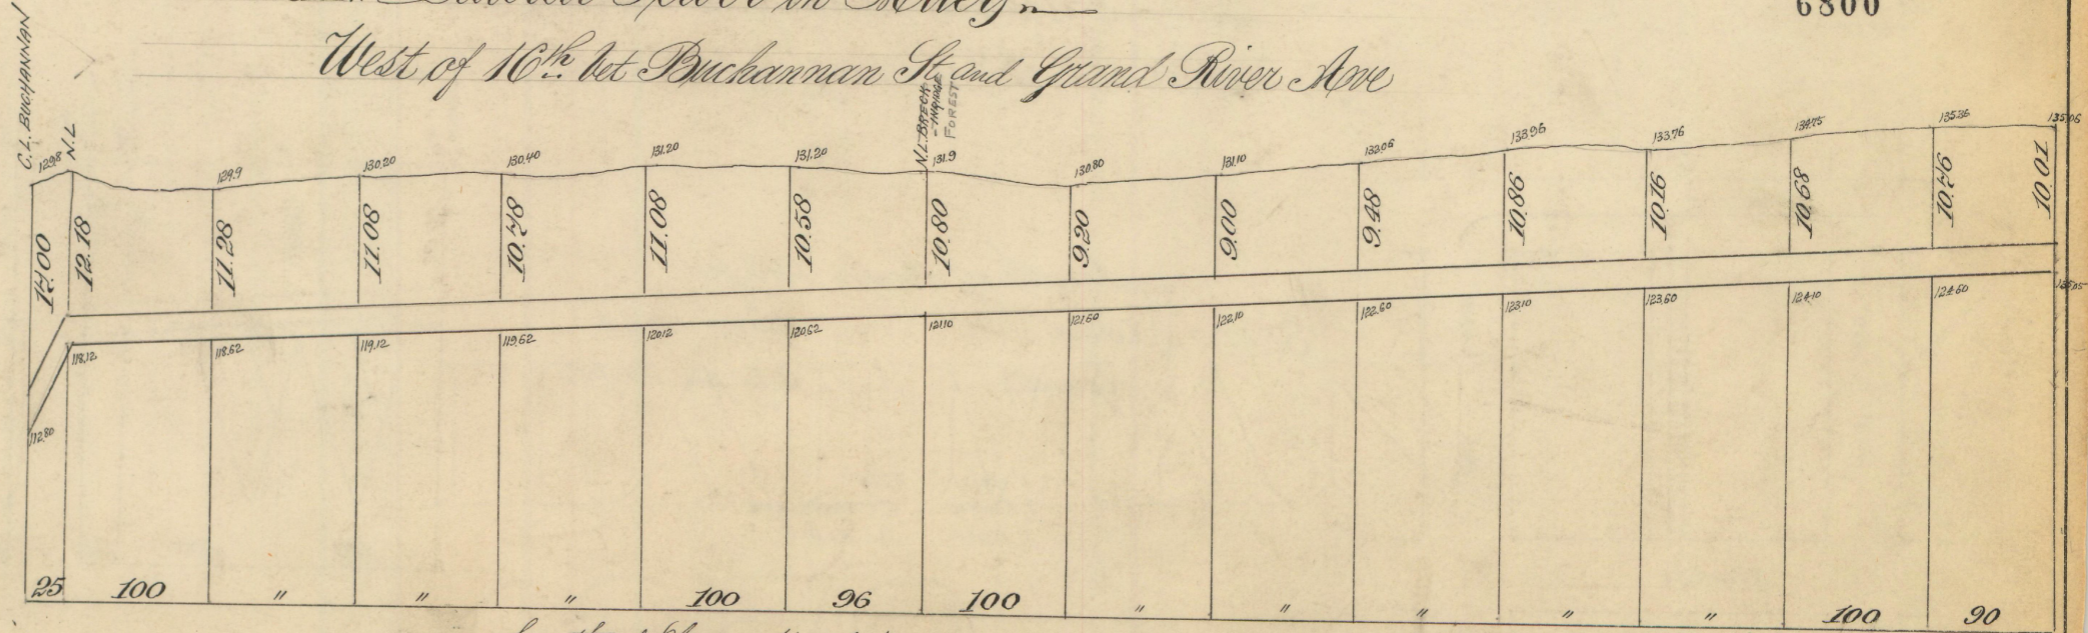 Lateral Sewer in Alley
6800
West of 16th bet Buchannan St and Grand River Ave
C.L. BUCHANNAN
N.L
N.L. BRECK-
-INRIDGE
FOREST
129.8 129.9 130.20 130.40 131.20 131.20 131.9 130.80 131.10 132.06 133.96 133.76 134.75 135.36 135.06
17.00 12.18 11.28 11.08 10.78 11.08 10.58 10.80 9.20 9.00 9.48 10.86 10.16 10.68 10.76 10.01
112.80 118.12 118.62 119.12 119.62 120.12 120.62 121.10 121.60 122.10 122.60 123.10 123.60 124.10 124.60
25 100 " " " 100 96 100 " " " " " 100 90